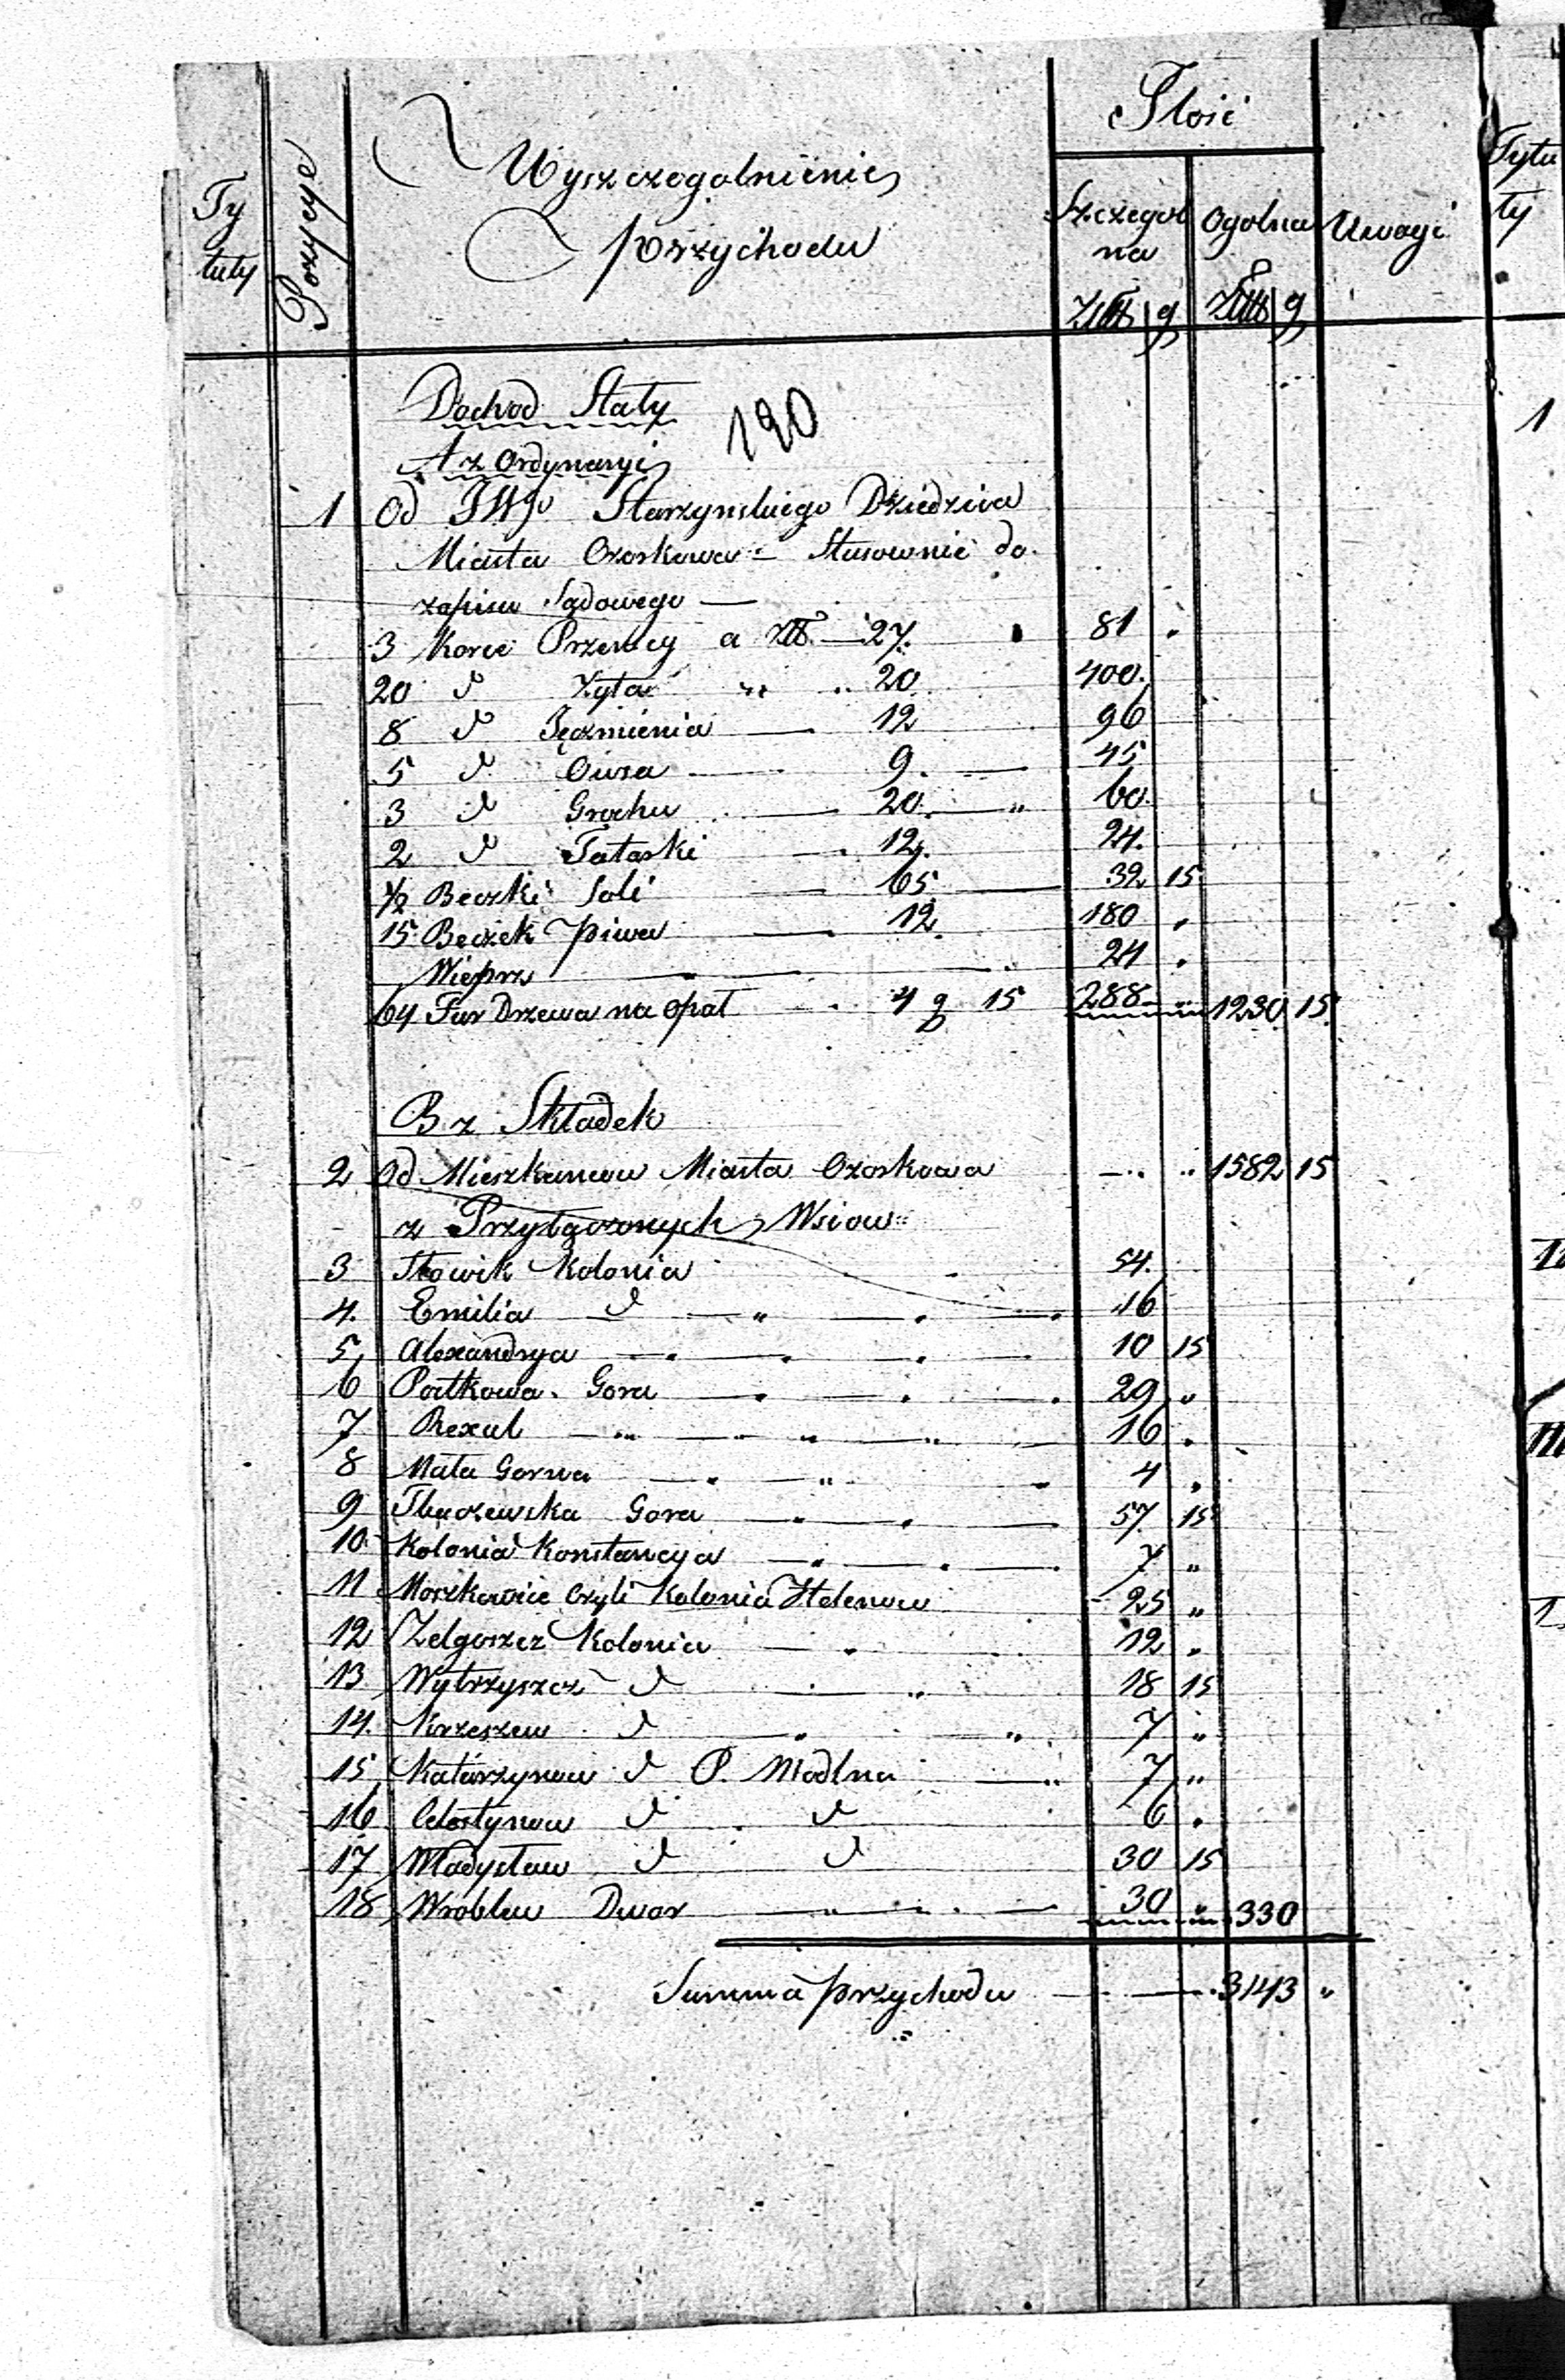 Tytuły
Pozycye
Wyszczegolnienie
przychodu
Ilość
Szczegolna
Ogolna
Uwagi
Złp g Złp g
Dochod Stały
120
A z Ordynaryi
1 Od JWgo Starzynskiego Dziedzica
Miasta Ozorkowa - Stosownie do
zapisu Sądowego —
3 Korce Przenicy a Złp. — 27. 81 "
20 d° Zyta " " 20 400.
8 d° Jęczmienia — 12 96
5 d° Owsa — 9. — 45
3 d° Grochu — 20. — " 60.
2 d° Tatarki — 12. 24.
1/2 Beczki Soli — 65 — 32 15
15 Beczek piwa — 12. 180 "
Wieprz — 24 "
64 Fur Drzewa na opał 4 g 15 288 — " 1230 15
B z Składek
2 Od Mieszkancow Miasta Ozorkowa — " " 1582 15
z Przyłączonych Wsiow
3 Słowik Kolonia 54.
4. Emilia d° — " — 16
5 Alexandrya — 10 15
6 Parkowa Gora — 29 "
7 Rexul — " — 16 "
8 Mała Gorna — " 4 "
9 Tkaczewska Gora — 57 15
10 Kolonia Konstancya — 7 "
11 Morzkowice czyli Kolonia Helenow 25 "
12 Zelgoszcz Kolonia — 12 "
13 Wytrzyszcz d° — " 18 15
14. Krzeszew d° " " 7 "
15 Katarzynow d° P. Modlna — " 7 "
16 Celestynow d° d° 6 "
17 Władysław d° d° 30 15
18 Wroblew Dwor — " — 30 " 330
Summa przychodu — 3143 "
Tytu
ty
1